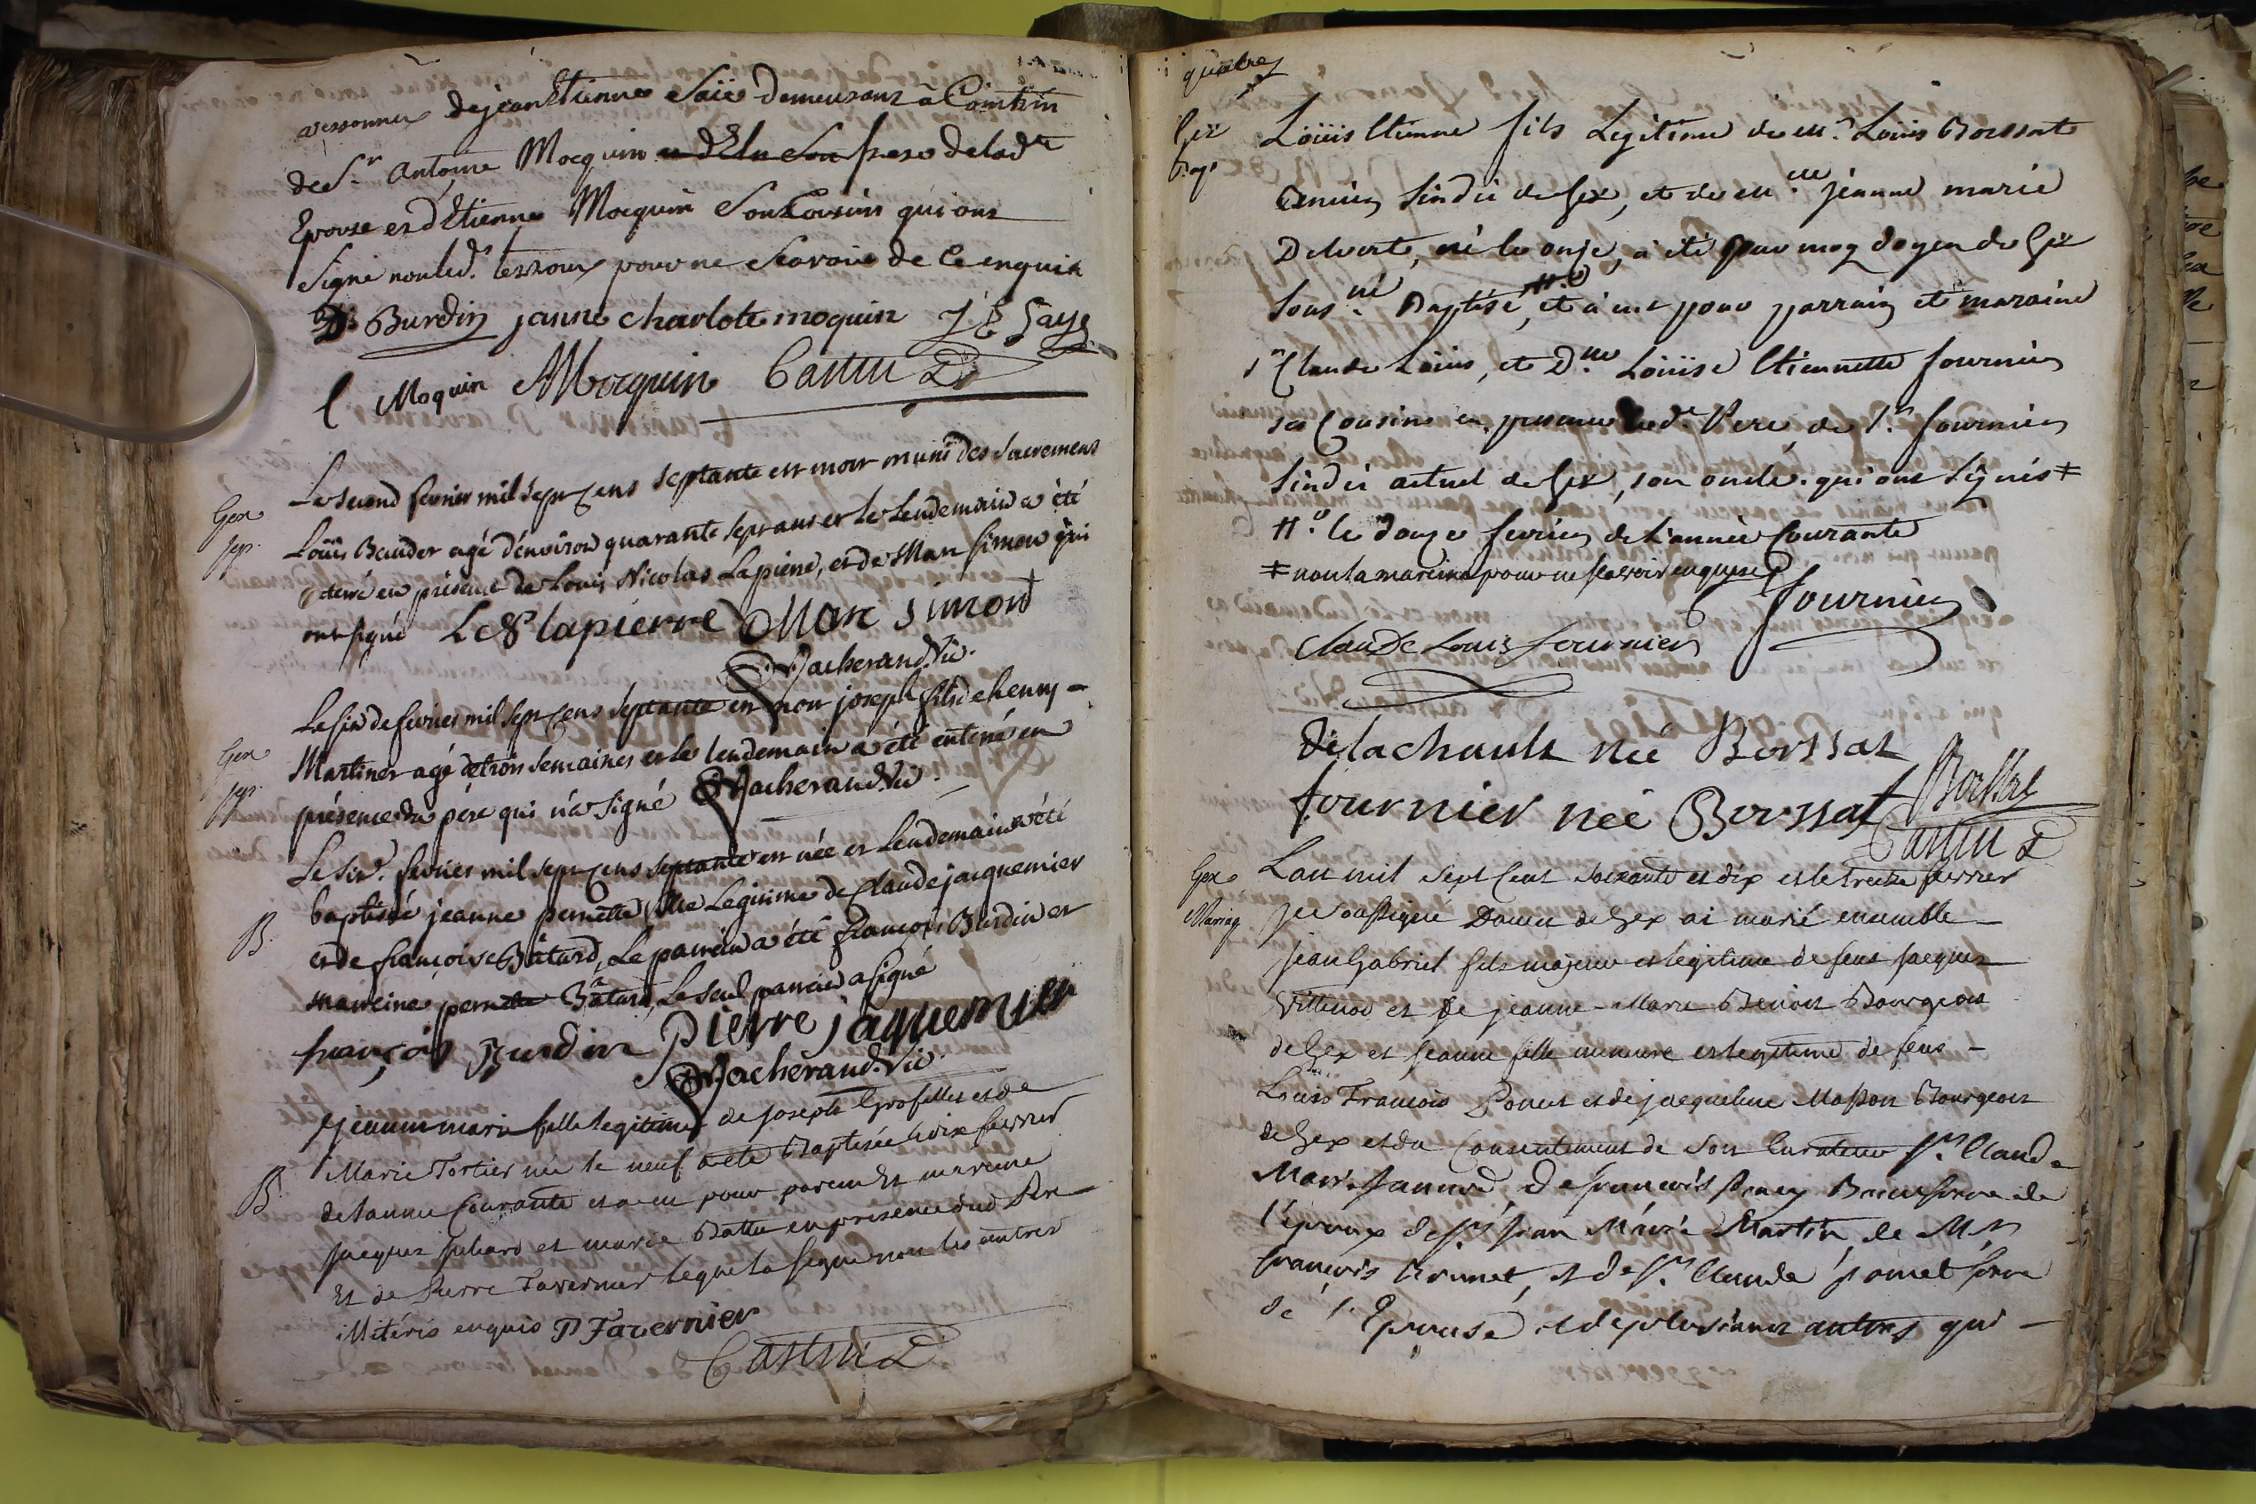 a vessonnex de jean Etienne Saïe demeurant à Cointrin
de S.r Antoine Mocquin frere de lad.te
Epouse et d'Etienne Mocquin Son Cousin qui ont
Signé non led.t tessoux pour ne Scavoir de Ce enquis
Burdin janne charlote moquin J E Saye
Moquin AMocquin Castin D
Le second fevrier mil sept cens septante est mort muni des sacremens
Gex
sep.
Loüis Baudet agé d'environ quarante sept ans et le lendemain a été
enterré en présence de Louis Nicolas Lapierre, et de Marc Simon qui
ont signé L N lapierre Marc simond
Vacherand. Vic.
Le six de fevrier mil sept cens septante est mort joseph fils de henry
Gex
sep.
Martinet agé de trois semaines et le lendemain a été enterré en
présence du père qui n'a signé Vacherand. Vic.
Le six.e fevrier mil sept cens septante est née et lendemain a été
B.
baptisée jeanne pernette fille Legitime de Claude jacquemier
et de françoise Bâtard, Le parrein a été françois Burdin et
mareine pernette Bâtard, Le seul parrein a signé
françois Burdin pierre jaquemier
Vacherand. Vic.
jeanne marie fille legitime de Joseph Grosfillex et de
B.
Marie Tortier née le neuf a été Baptisée le dix fevrier
de l'année Courante et a eu pour parein et mareine
Jacques Juliard et marie Battu en presence dud Pere
Et de Pierre Tavernier lequel a signé non les autres
illiterés enquis P Tavernier
Castin D
quatre
Gex
Bap.
Loüis Etienne fils Legitime de m.r Loüis Borssat
Ancien Sindic de Gex, et de m.lle jeanne marie
Delverte, né le onze, a été par moy doyen de Gex
sous.né Baptisé, et a eut pour parrain et maraine
s.r Claude Loüis, et D.lle Loüise Etiennette fournier
ses Cousins en presence dud. Pere, de s.r fournier
Sindic actuel de Gex, son oncle. qui ont signés ‡
H.o le douze fevrier de L'année Courante
‡ non la mareine pour ne scavoir enquise
fournier
Claude Louis fournier
Delachault née Borssat
fournier née Borssat Borssat
Castin D
Gex
Mariag
L'an mil sept Cent soixante et dix et le treize fevrier
je soussigné Doien de Gex ai marié ensemble
Jean Gabriel fils majeur et legitime de feus Jacques
Villerod et de jeanne-Marie Benoit Bourgeois
de Gex et Jeanne fille mineure et legitime de feus
Louis François Ponet et de jacqueline Masson Bourgeois
de Gex et du Consentement de son Curateur S.r Claude
Marie Jannod, de françois Beaufrere de
l'époux de S.r Jean Méré Martin, de M.r
françois brunet, et de S.r Claude ponet frere
de l'Epouse et de plusieurs autres qui